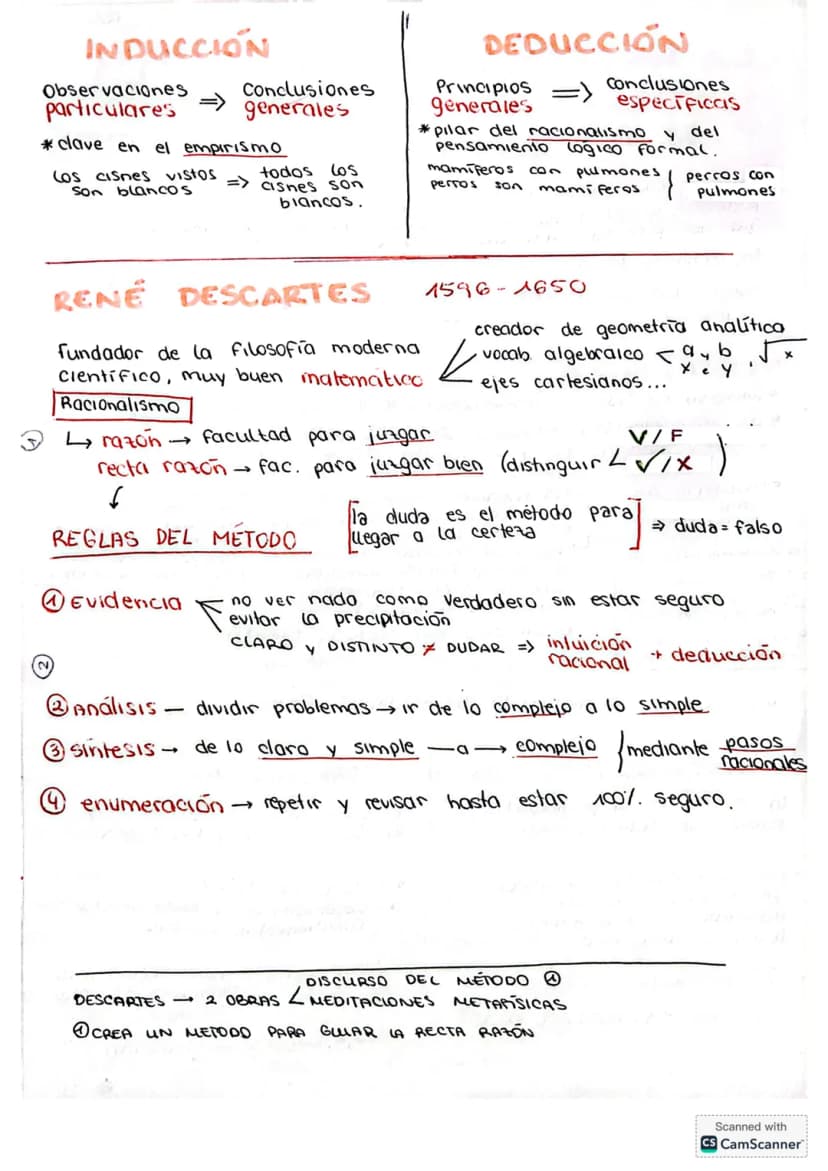 INDUCCIÓN
Observaciones particulares => Conclusiones generales
* clave en el empirismo
Los cisnes vistos son blancos => todos los cisnes son blancos.
DEDUCCIÓN
Principios generales => conclusiones específicas
* pilar del racionalismo y del
pensamiento lógico formal.
mamíferos con pulmones
perros son mamíferos } perros con pulmones
RENÉ DESCARTES 1596-1650
fundador de la filosofía moderna
científico, muy buen matemático
creador de geometría analítica
vocab. algebraico < a y b, x e y, √x
ejes cartesianos...
Racionalismo
↳ razón → facultad para juzgar
recta razón → fac. para juzgar bien (distinguir < V/F ✓/x)
REGLAS DEL MÉTODO
[la duda es el método para
llegar a la certeza] => duda = falso
① Evidencia < no ver nada como verdadero sin estar seguro
evitar la precipitación
CLARO y DISTINTO ≠ DUDAR => intuición racional + deducción
②
② Análisis — dividir problemas → ir de lo complejo a lo simple
③ síntesis → de lo claro y simple —a→ complejo { mediante pasos racionales
④ enumeración → repetir y revisar hasta estar 100%. seguro.
DESCARTES → 2 OBRAS < DISCURSO DEL MÉTODO ①
MEDITACIONES METAFÍSICAS
① CREA UN METODO PARA GUIAR LA RECTA RAZÓN
Scanned with
CS CamScanner